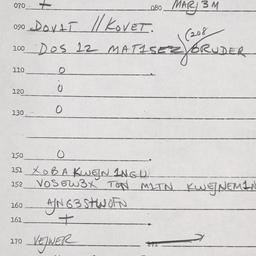 070 + 080 MARJ 3 M
090 DOVIT // KOVET.
100 DOS 12 MATISEZ (208 BRUDER
110 0
120 0
130 0
150 0
151 XOBA KWEJN 1NGU
152 VOSEW3X TON M1TN KWEJNEM1N
160 AJNG3SHWOTN
161 +
170 VEJNER